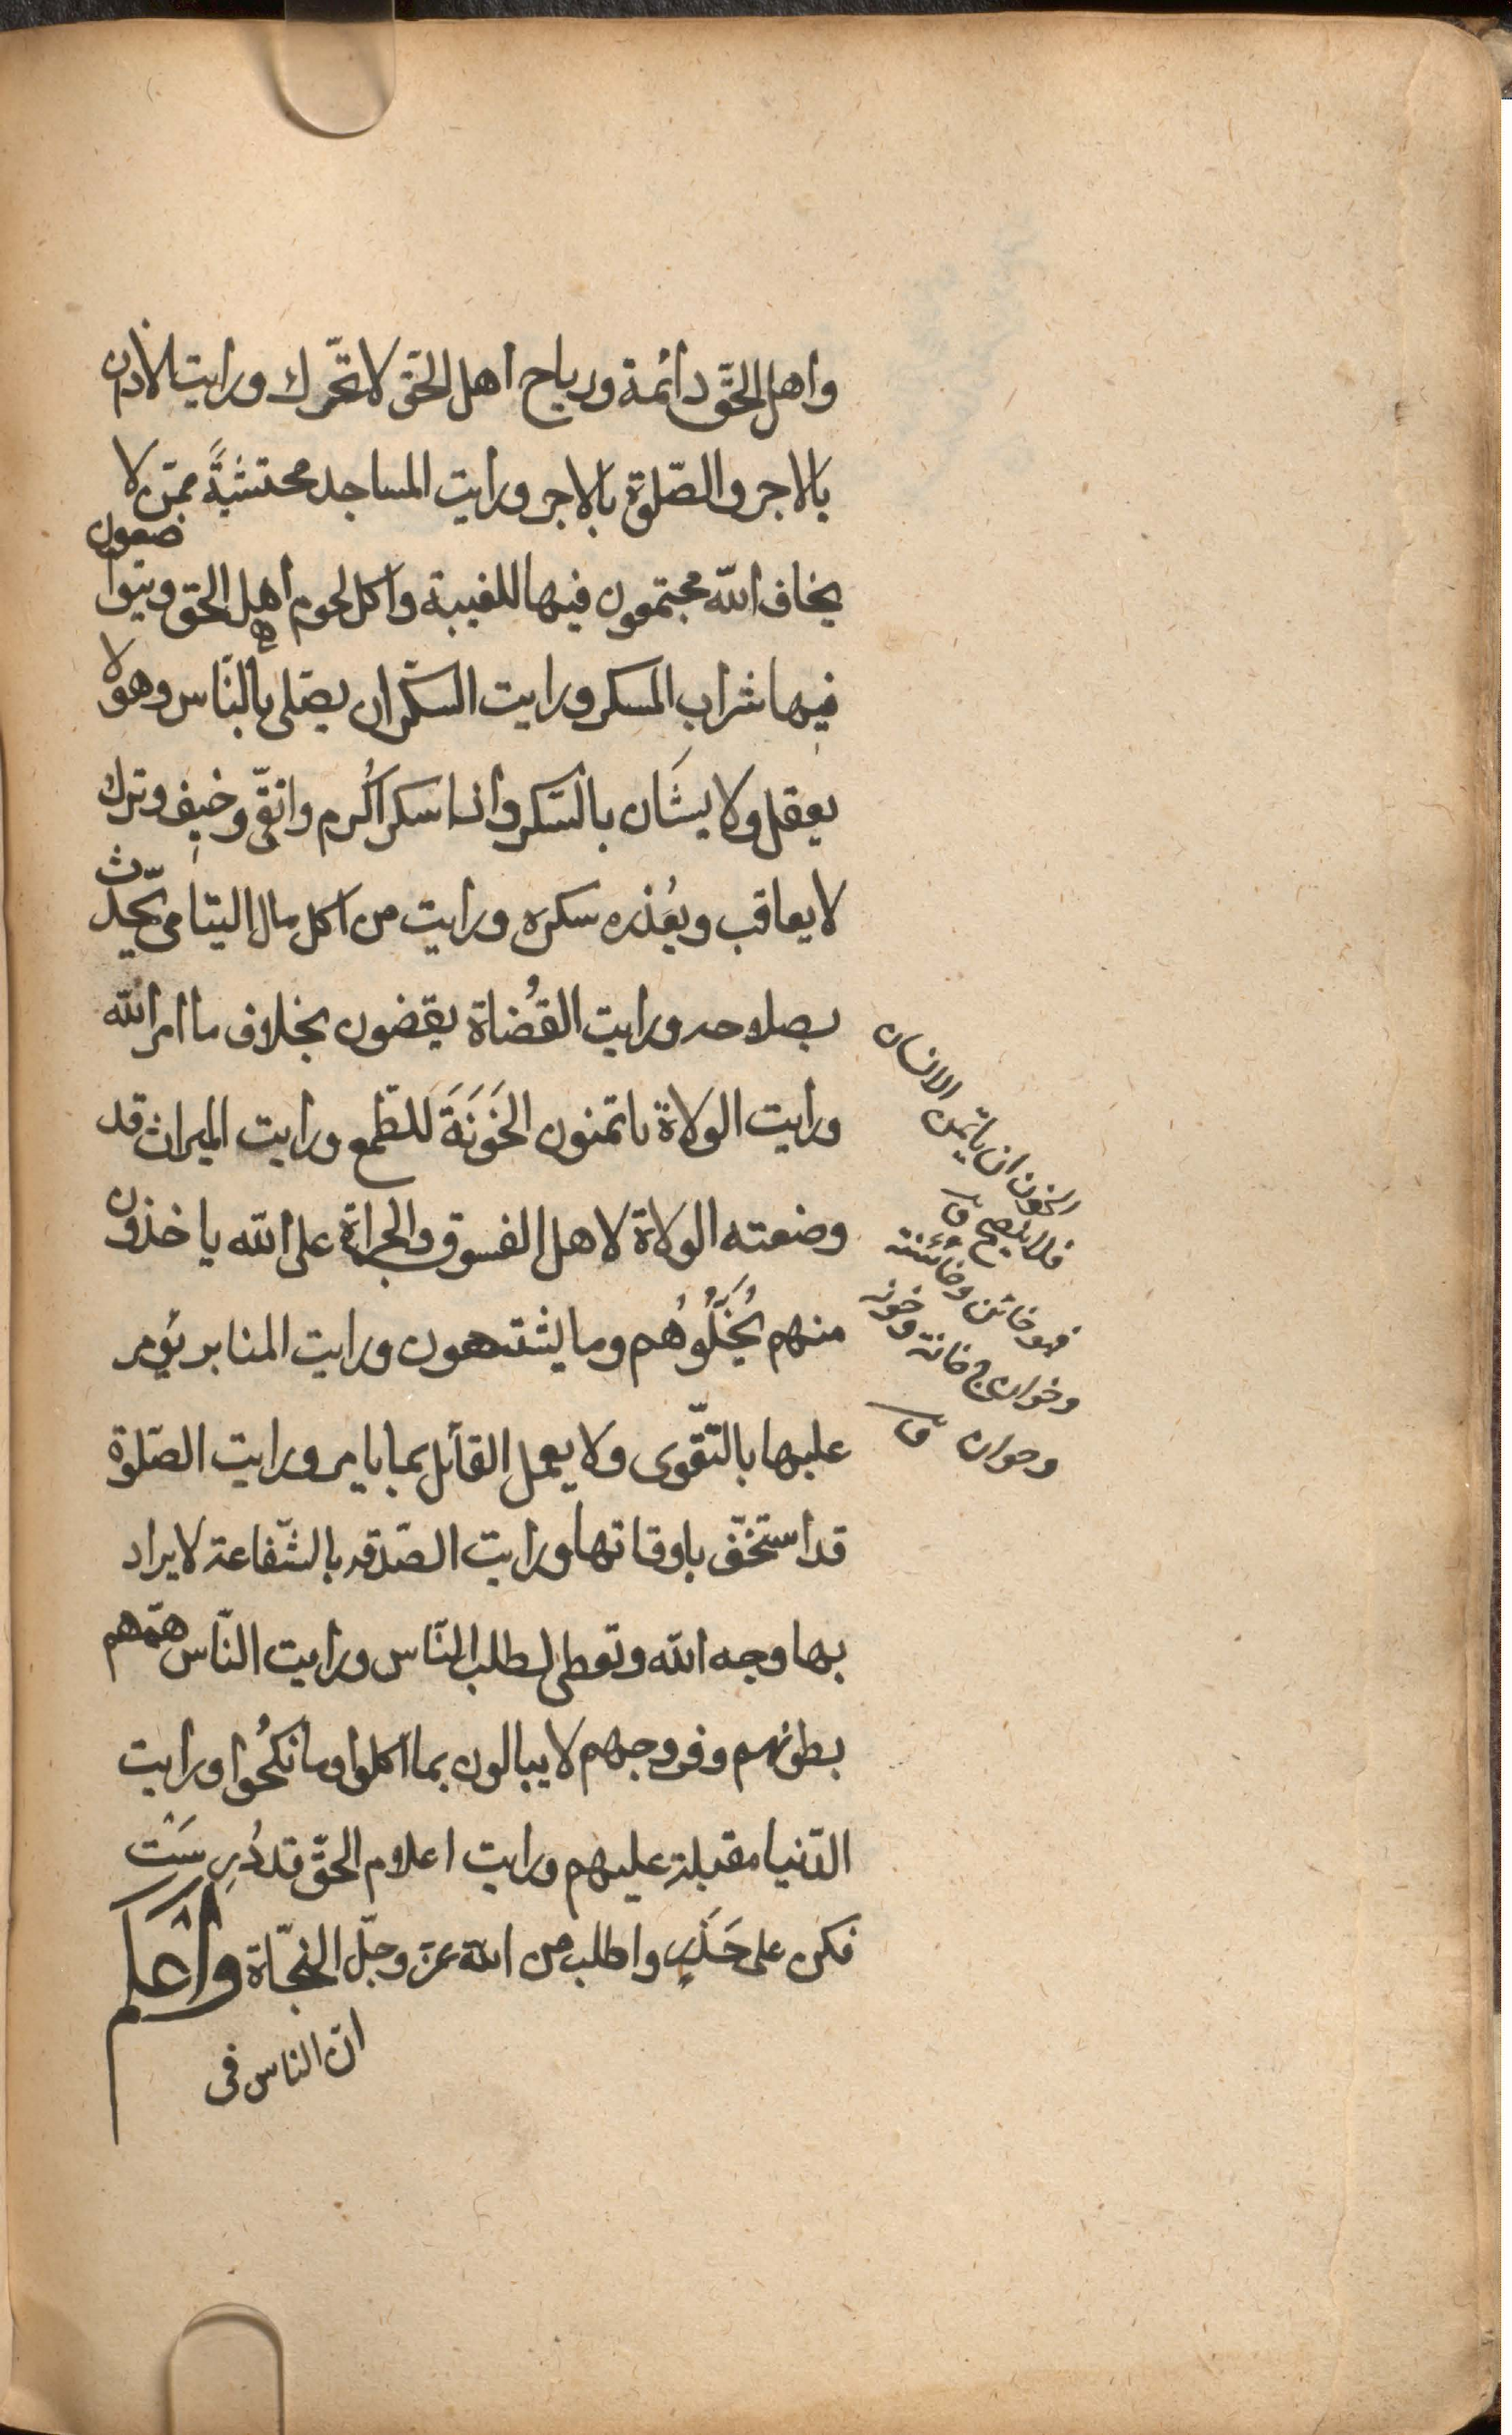 واهل الحقّ دائمة ورياح اهل الحقّ لا تحّرك ورايت الاذان
بالاجر والصّلوة بالاجر ورايت المساجد محتشيةً ممّن لا
يخاف الله مجتمعون فيها للغيبة واكل لحوم اهل الحق ويتواصفون
فيها شراب المسكر ورايت السكّران يصّلى بالنّاس وهو لا
يعقل ولا يشَان بالسّكر واذا سكر اُكرم واتقّى وخيف وترك
لا يعاقب ويُعذر بسكره ورايت من اكل مال اليتامى يحّدث
بصلاحه ورايت القُضاة يقضون بخلاف ما امر الله
ورايت الولاة ياتمنون الخَوَنَةَ للطّمع ورايت الميراث قد
وضعته الولاة لاهل الفسوق والجراة على الله ياخذون
منهم يُخَلُّوُهُم وما يشتهون ورايت المنابر يؤمر
عليها بالتّقوى ولا يعمل القائل بما يامر ورايت الصّلوة
قد استخفّ باوقاتها ورايت الصّدقه بالشّفاعة لا يراد
بها وجه الله وتعطى لطلب النّاس ورايت النّاس همّهم
بطونهم وفروجهم لا يبالون بما اكلوا وما نكحُوا ورايت
الدّنيا مقبلة عليهم ورايت اعلام الحقّ قد دُرِسَتْ
فكن على حَذَرٍ واطلب من الله عزّ وجلّ النجّاة وَاعْلَم
انّ الناس فى
الخون ان ياتمن الانسان
فلا ينصح ق
فهو خائن وخائنة
وخوان ج خانة وخونه
وخوان ق